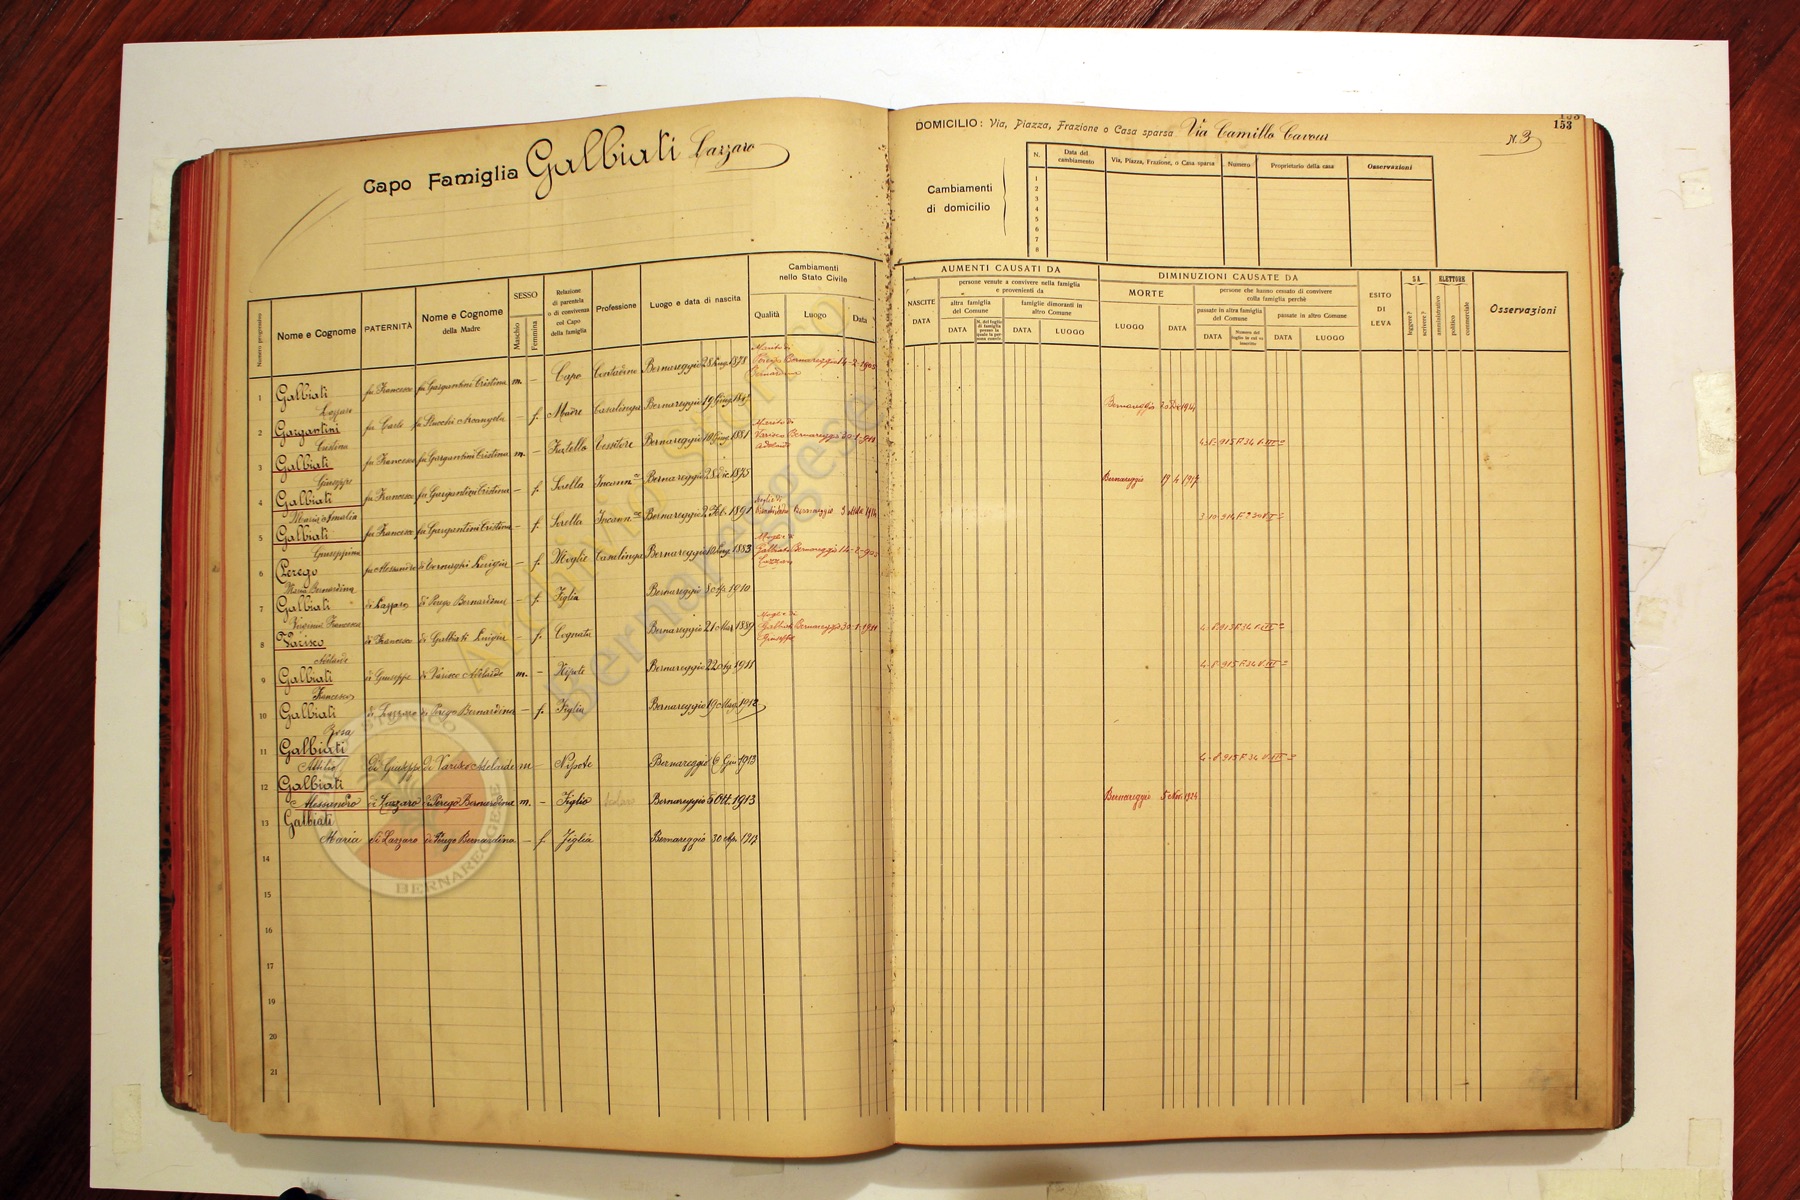 Capo Famiglia Galbiati Lazzaro
DOMICILIO: Via, Piazza, Frazione o Casa sparsa Via Camillo Cavour
N. 3
153
Cambiamenti di domicilio
N. Data del cambiamento Via, Piazza, Frazione, o Casa sparsa Numero Proprietario della casa Osservazioni
1
2
3
4
5
6
7
8
Numero progressivo
Nome e Cognome
PATERNITÀ
Nome e Cognome della Madre
SESSO
Maschio
Femmina
Relazione di parentela o di convivenza col Capo della famiglia
Professione
Luogo e data di nascita
Cambiamenti nello Stato Civile
Qualità Luogo Data
AUMENTI CAUSATI DA
NASCITE
DATA
persone venute a convivere nella famiglia e provenienti da
altra famiglia del Comune
DATA
famiglie dimoranti in altro Comune
DATA LUOGO
DIMINUZIONI CAUSATE DA
MORTE
LUOGO DATA
persone che hanno cessato di convivere colla famiglia perchè
passate in altra famiglia del Comune
DATA
passate in altro Comune
DATA LUOGO
ESITO DI LEVA
SA
leggere?
scrivere?
ELETTORE
amministrativo
politico
commerciale
Osservazioni
1 Galbiati Lazzaro fu Francesco fu Gargantini Cristina m. - Capo Contadino Bernareggio 28 1878 Marito di Perego Bernardina Bernareggio 14-2-905
2 Gargantini Cristina fu Carlo fu Stucchi Arcangela - f. Madre Casalinga Bernareggio 19 Bernareggio
3 Galbiati Giuseppe fu Francesco fu Gargantini Cristina m. - Fratello Tessitore Bernareggio 10 1881 Marito di Varisco Adelaide Bernareggio 30-1-911 4-8-915 F. 34 V. III
4 Galbiati Maria Amalia fu Francesco fu Gargantini Cristina - f. Sorella Bernareggio 28 dic. 1875 Bernareggio 19 4 1917
5 Galbiati Giuseppina fu Francesco fu Gargantini Cristina - f. Sorella Bernareggio 2 Feb. 1891 Moglie di Bernareggio
6 Perego Maria Bernardina fu Alessandro di Cornaghi Luigia - f. Moglie Casalinga Bernareggio 1883 Moglie di Galbiati Lazzaro Bernareggio 14-2-905
7 Galbiati Virginia Francesca di Lazzaro di Perego Bernardina - f. Figlia Bernareggio 1910
8 Varisco Adelaide di Francesco di Galbiati Luigia - f. Cognata Bernareggio 21 Mar 1889 Moglie di Galbiati Giuseppe Bernareggio 30-1-911 4-8-915 F. 34 V. III
9 Galbiati Francesco di Giuseppe di Varisco Adelaide m. - Nipote Bernareggio 22 1911 4-8-915 F. 34 V. III
10 Galbiati Rosa di Lazzaro di Perego Bernardina - f. Figlia Bernareggio 19 Mag. 1912
11 Galbiati Attilio di Giuseppe di Varisco Adelaide m - Nipote Bernareggio 6 Giu 1913 4-8-915 F. 34 V. III
12 Galbiati Alessandro di Lazzaro di Perego Bernardina m. - Figlio Bernareggio 5 Ott. 1913 Bernareggio 5 Nov. 1924
13 Galbiati Maria di Lazzaro di Perego Bernardina - f. Figlia Bernareggio 30 Apr. 1917
14
15
16
17
18
19
20
21
Archivio Storico
Bernareggese